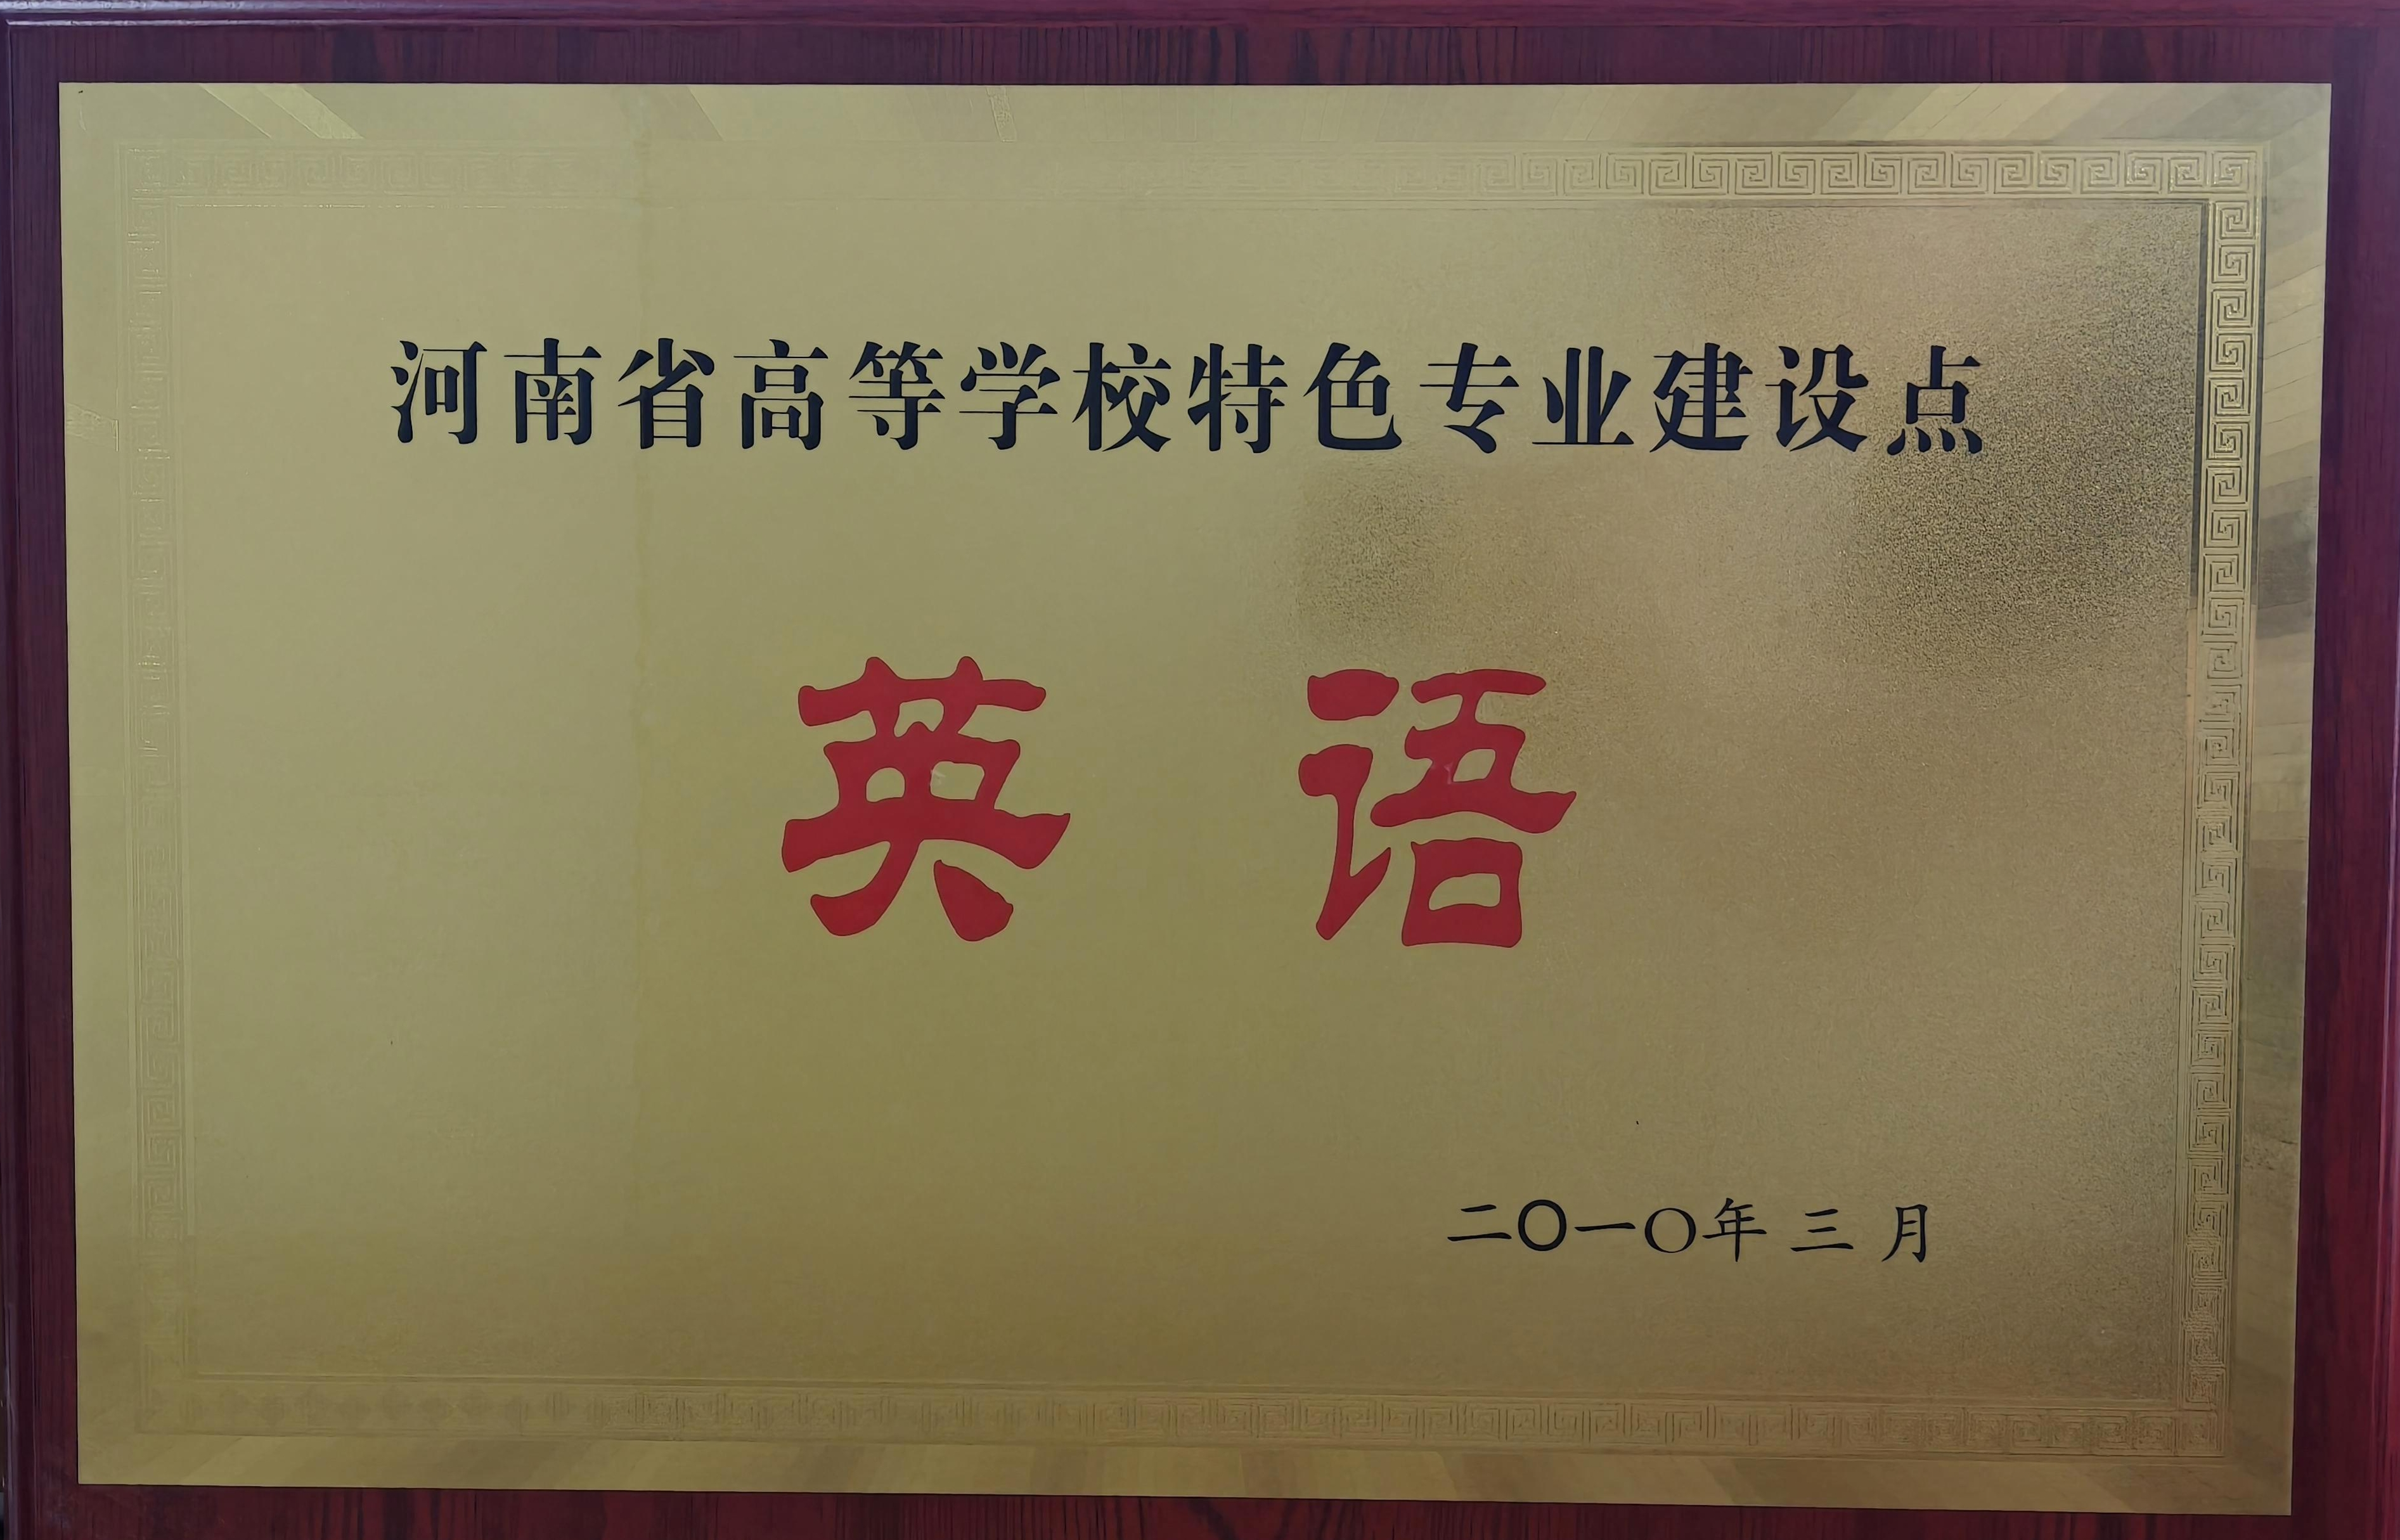 河南省高等学校特色专业建设点
英语
二〇一〇年三月